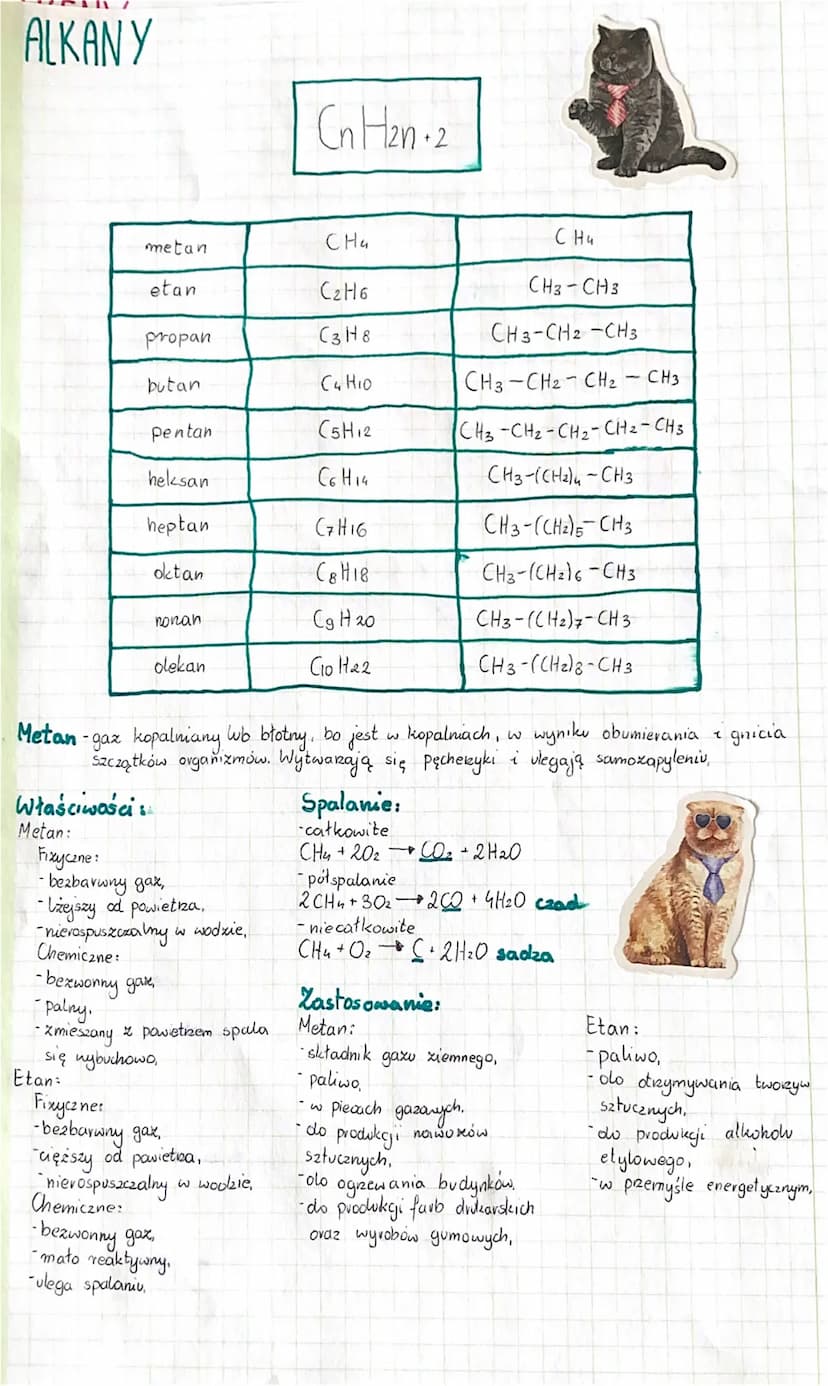 ALKANY
CnH2n+2
metan CH4 CH4
etan C2H6 CH3-CH3
propan C3H8 CH3-CH2-CH3
butan C4H10 CH3-CH2-CH2-CH3
pentan C5H12 CH3-CH2-CH2-CH2-CH3
heksan C6H14 CH3-(CH2)4-CH3
heptan C7H16 CH3-(CH2)5-CH3
oktan C8H18 CH3-(CH2)6-CH3
nonan C9H20 CH3-(CH2)7-CH3
dekan C10H22 CH3-(CH2)8-CH3
Metan - gaz kopalniany lub błotny, bo jest w kopalniach, w wyniku obumierania i gnicia
szczątków organizmów. Wytwarzają się pęcherzyki i ulegają samozapyleniu,
Właściwości:
Metan:
Fizyczne:
- bezbarwny gaz,
- lżejszy od powietrza,
- nierospuszczalny w wodzie,
Chemiczne:
- bezwonny gaz,
- palny,
- zmieszany z powietrzem spala
się wybuchowo,
Etan:
Fizyczne:
- bezbarwny gaz,
- cięższy od powietrza,
- nierospuszczalny w wodzie,
Chemiczne:
- bezwonny gaz,
- mało reaktywny,
- ulega spalaniu,
Spalanie:
- całkowite
CH4 + 2O2 → CO2 + 2H2O
- półspalanie
2CH4 + 3O2 → 2CO + 4H2O czad
- niecałkowite
CH4 + O2 → C + 2H2O sadza
Zastosowanie:
Metan:
- składnik gazu ziemnego,
- paliwo,
- w piecach gazowych,
- do produkcji nawozów
sztucznych,
- do ogrzewania budynków,
- do produkcji farb drukarskich
oraz wyrobów gumowych,
Etan:
- paliwo,
- do otrzymywania tworzyw
sztucznych,
- do produkcji alkoholu
etylowego,
- w przemyśle energetycznym,